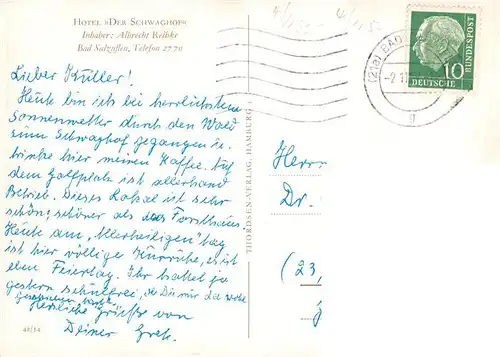 Hotel »Der Schwaghof«
Inhaber: Albrecht Kelbke
Bad Salzuflen, Telefon 2770
Lieber Küller!
Heute bin ich bei herrlichstem
Sonnenwetter durch den Wald
zum Schwaghof gegangen u.
trinke hier meinen Kaffee. Auf
dem Golfplatz ist allerhand
Betrieb. Dieses Lokal ist sehr
schön, schöner als das Forsthaus
Heute am „Allerheiligen" tag
ist hier völlige Kurruhe, es ist
eben Feiertag. Ihr hattet ja
gestern schulfrei, als Du mir da
Herzliche Grüße von
Deiner
42/54
THORDSEN-VERLAG, HAMBURG
(21a) BAD
-2.11
g
10
DEUTSCHE
BUNDESPOST
Herrn
Dr.
(23,